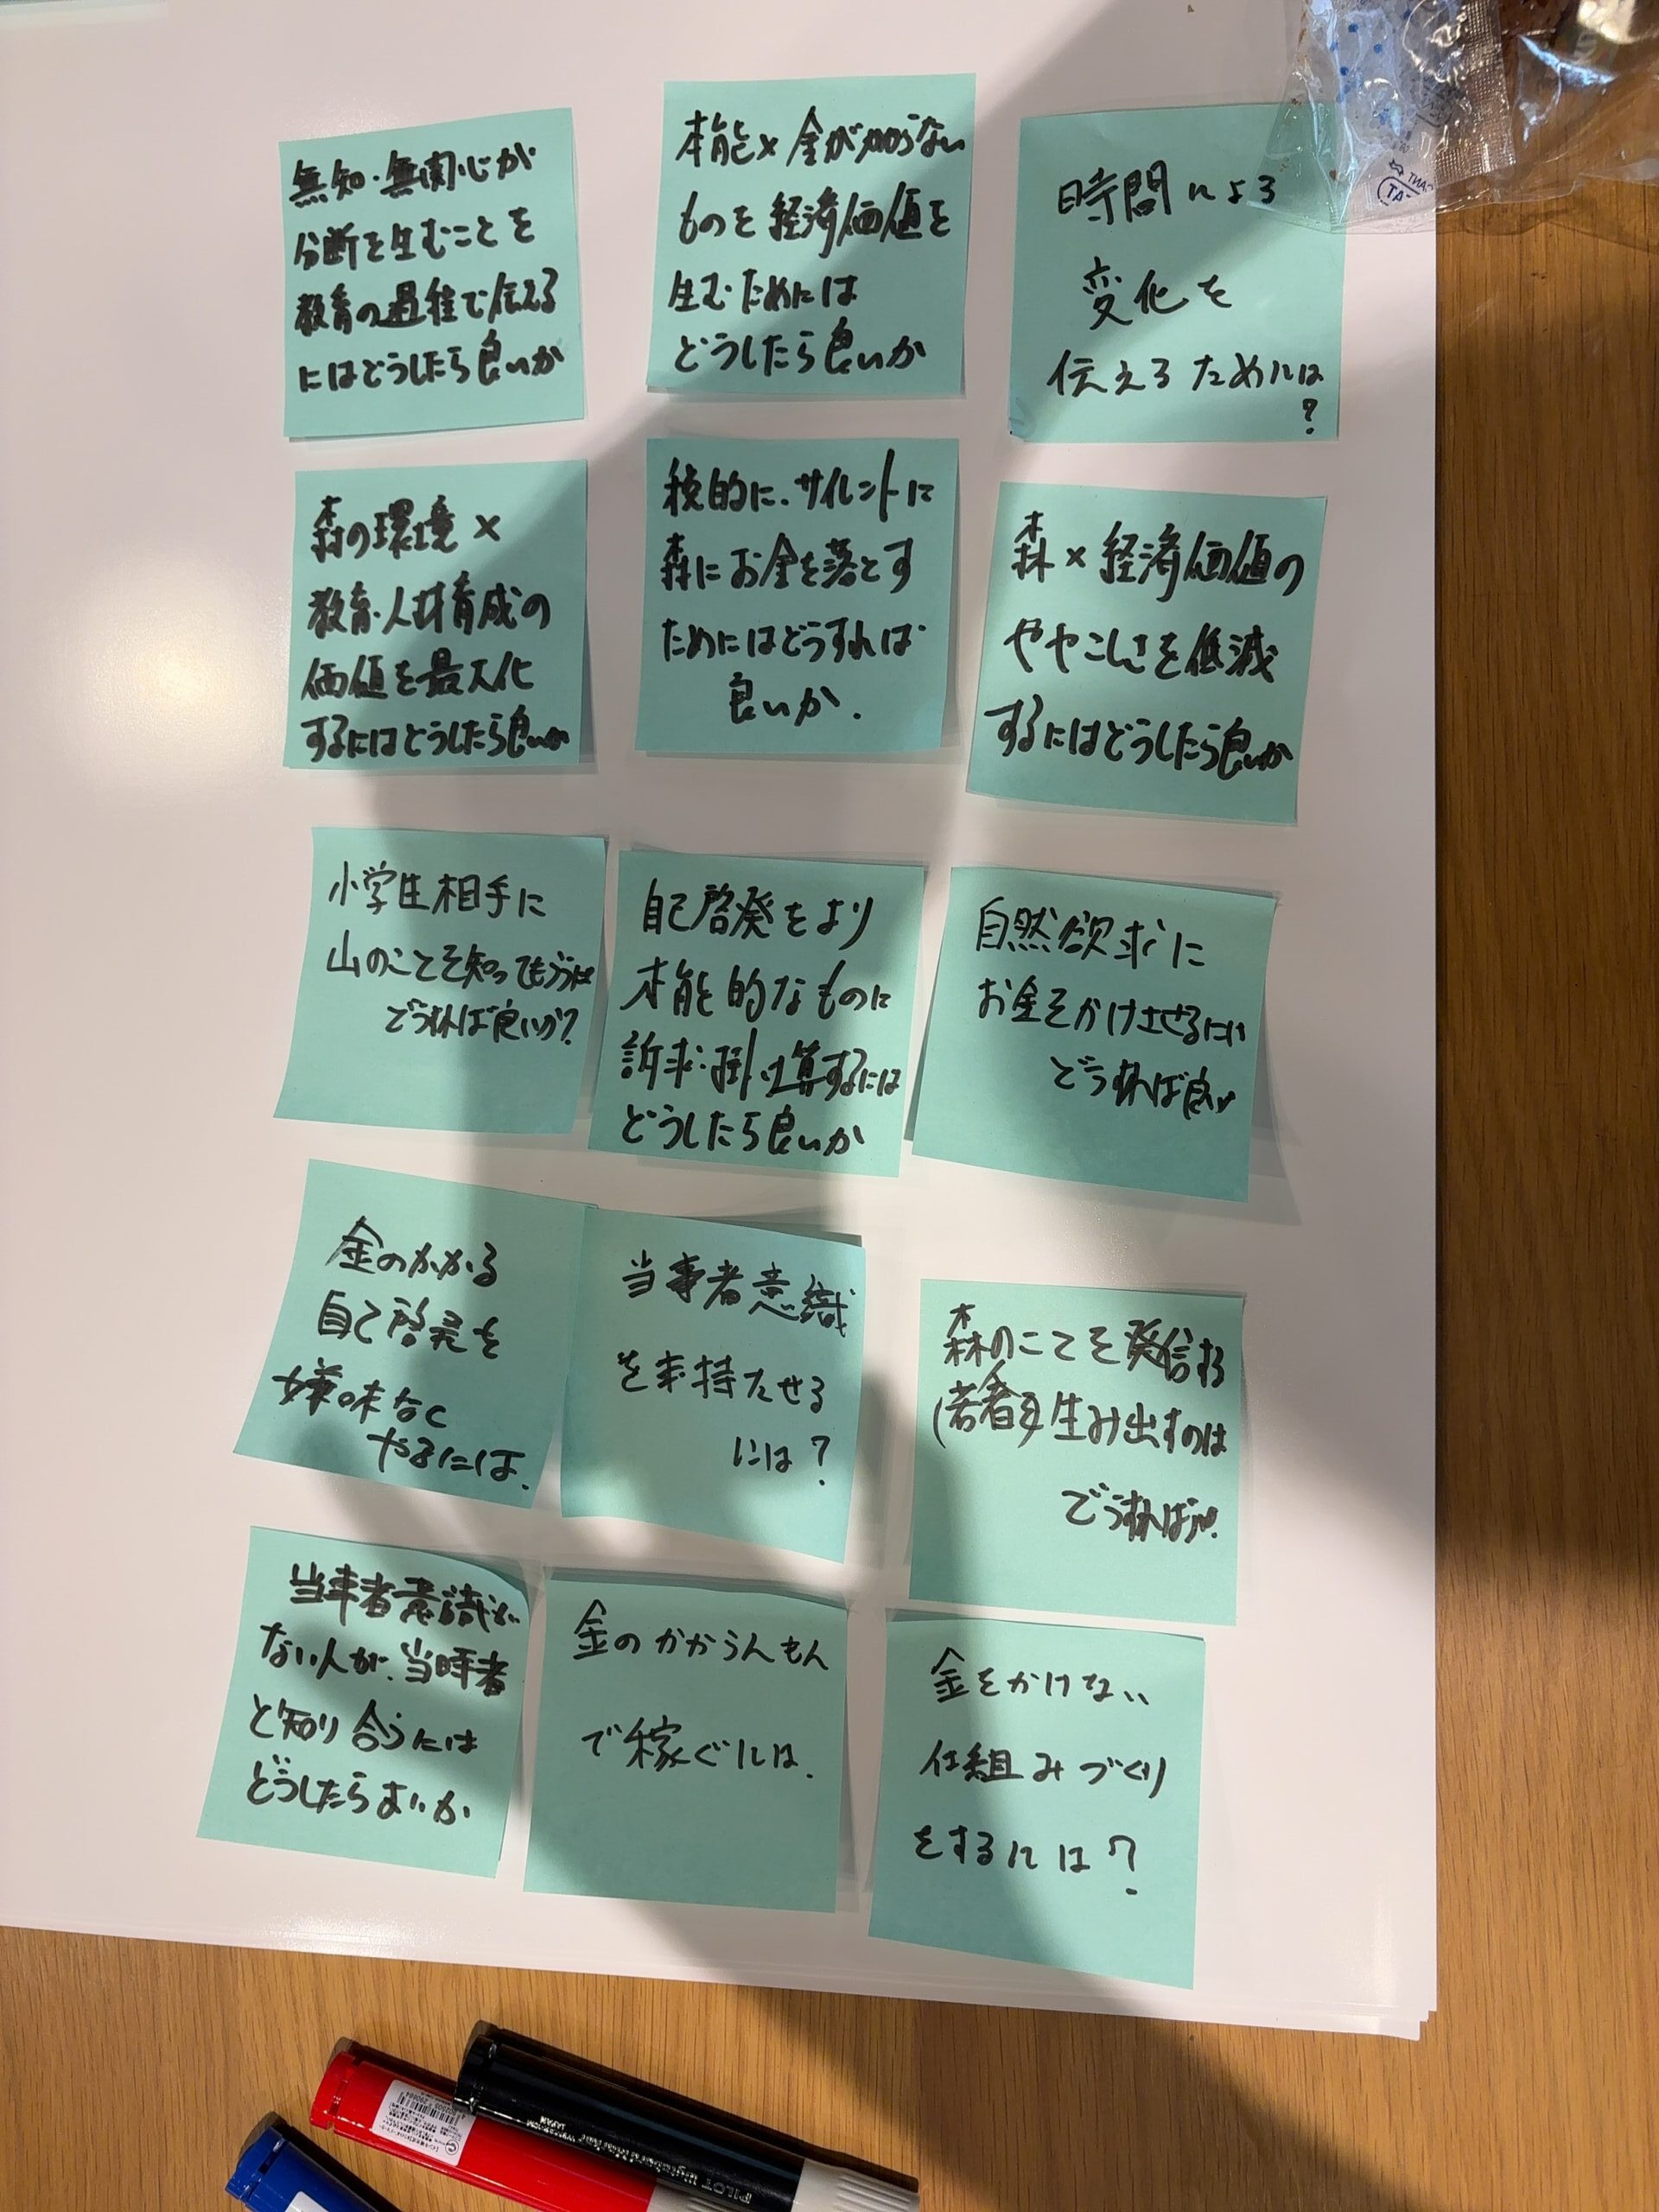 無知・無関心が
分断を生むことを
教育の過程で伝える
にはどうしたら良いか
本能×金がかからない
ものを経済価値を
生むためには
どうしたら良いか
時間による
変化を
伝えるためには
?
森の環境×
教育・人材育成の
価値を最大化
するにはどうしたら良いか
税的に、サイレントに
森にお金を落とす
ためにはどうすれば
良いか.
森×経済価値の
ややこしさを低減
するにはどうしたら良いか
小学生相手に
山のことを知ってもらうには
どうすれば良いか?
自己啓発をより
本能的なものに
訴求・掛け算するには
どうしたら良いか
自然欲求に
お金をかけさせるには
どうすれば良い
金のかかる
自己啓発を
嫌味なく
やるには.
当事者意識
を持たせる
には?
森のことを発信する
(若者)を生み出すのは
どうすれば
当事者意識が
ない人が、当事者
と知り合うには
どうしたらよいか
金のかからんもん
で稼ぐには.
金をかけない
仕組みづくり
をするには?
PILOT
JAPAN